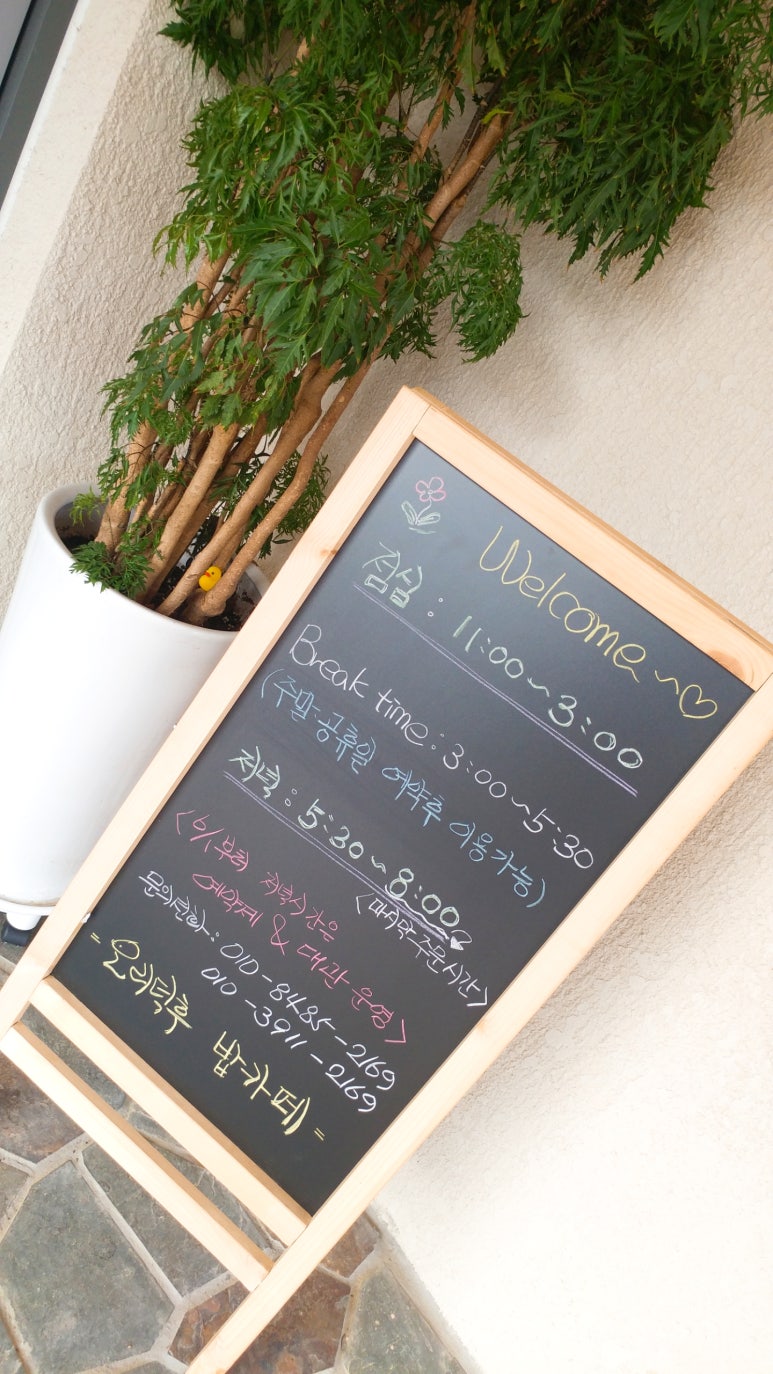 Welcome ~♡
점심 : 11:00 ~ 3:00
Break time : 3:00 ~ 5:30
(주말·공휴일 예약후 이용가능)
저녁 : 5:30 ~ 8:00
<마지막 주문시간>
<6/1부터 저녁시간은
예약제 & 대관 운영>
문의전화 : 010-8485-2169
010-3911-2169
"오리덕후 밥카페"